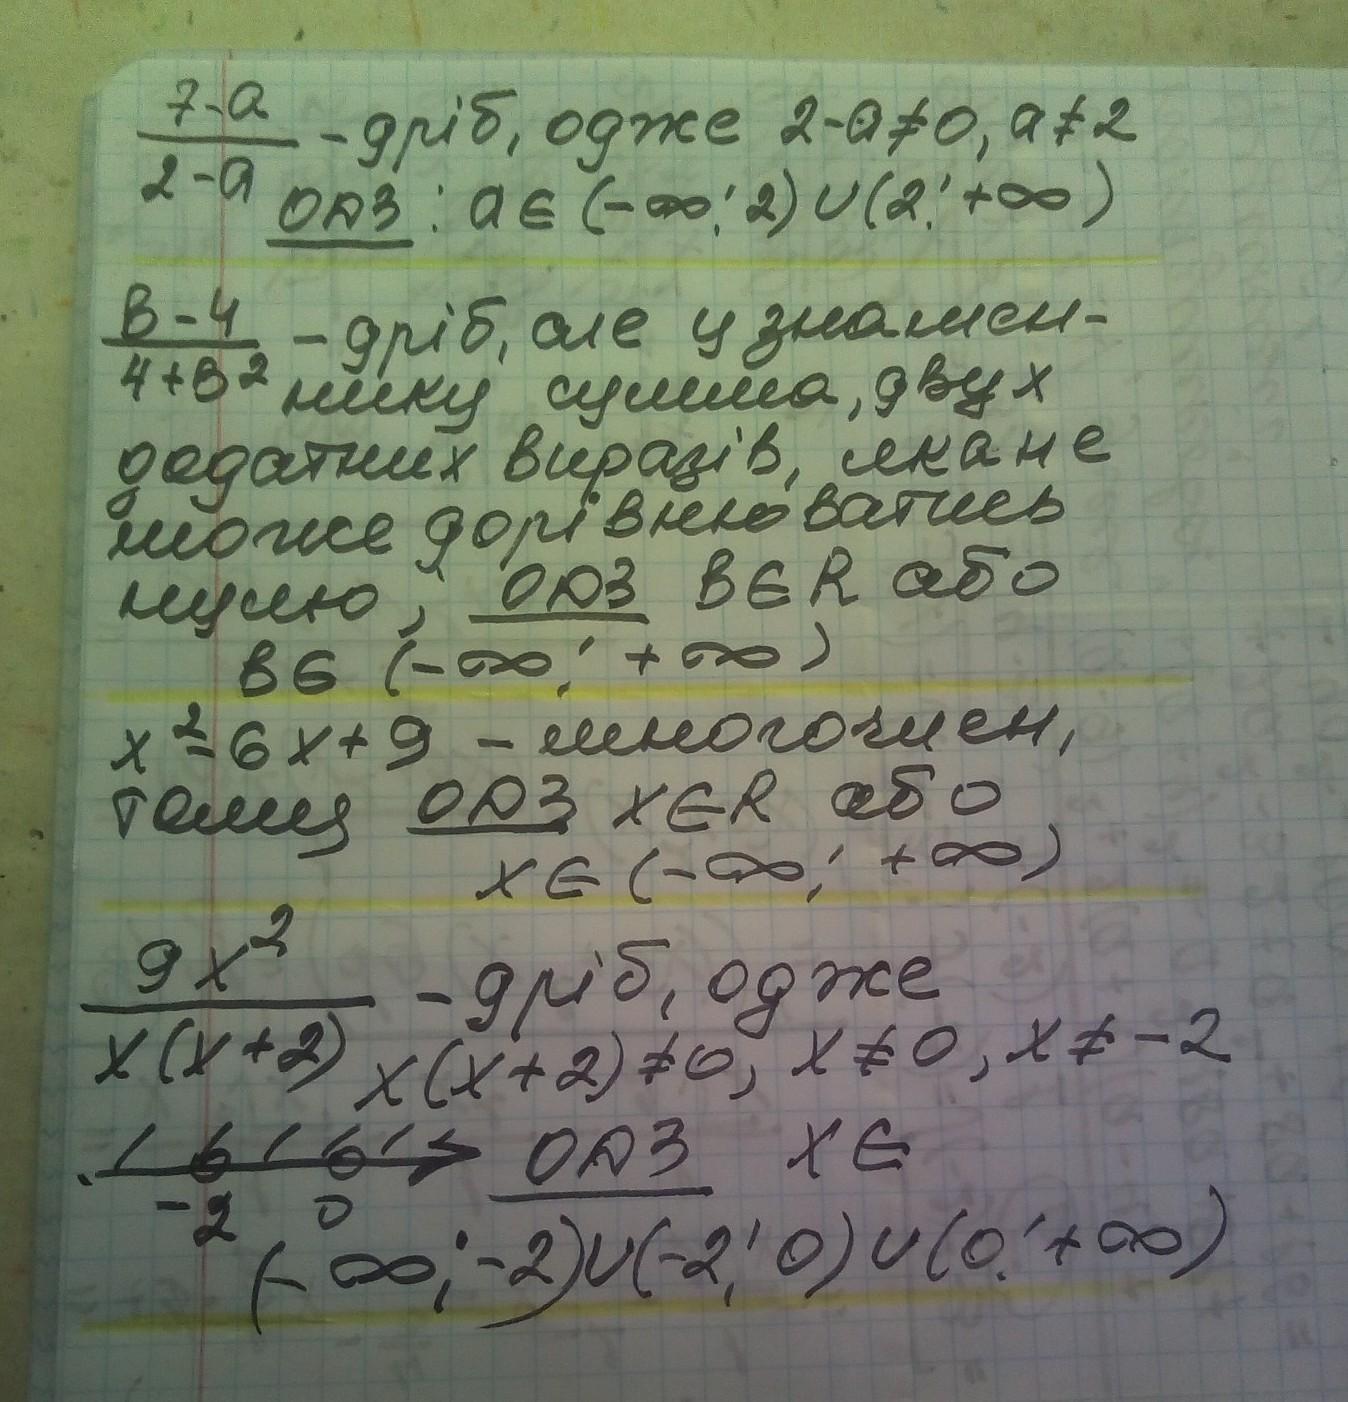 7-a
— - дріб, одже 2-a≠0, a≠2
2-a
ОДЗ: a∈(-∞; 2)∪(2; +∞)
в-4
— - дріб, але у знамен-
4+в²
нику сумма, двух
додатних виразів, яка не
може дорівнюватись
нулю; ОДЗ в∈R або
в∈ (-∞; +∞)
x²-6x+9 - многочлен,
тому ОДЗ x∈R або
x∈(-∞; +∞)
9x²
— - дріб, одже
x(x+2)
x(x+2)≠0, x≠0, x≠-2
ОДЗ x∈
-2 0
(-∞; -2)∪(-2; 0)∪(0; +∞)